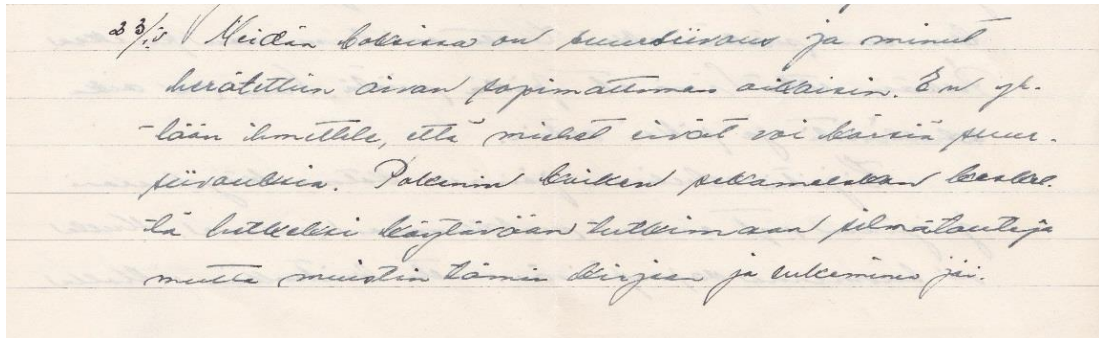 23/IV Meidän boksissa on suursiivous ja minut
herätettiin aivan sopimattoman aikaisin. En yl-
lään ihmettele, että miehet eivät voi kärsiä suur-
siivouksia. Pakenin kaiken sekamelskan keskel-
tä hetkeksi käytävään tutkimaan silmätauteja
mutta muistin tämän kirjeen ja lukeminen jäi.